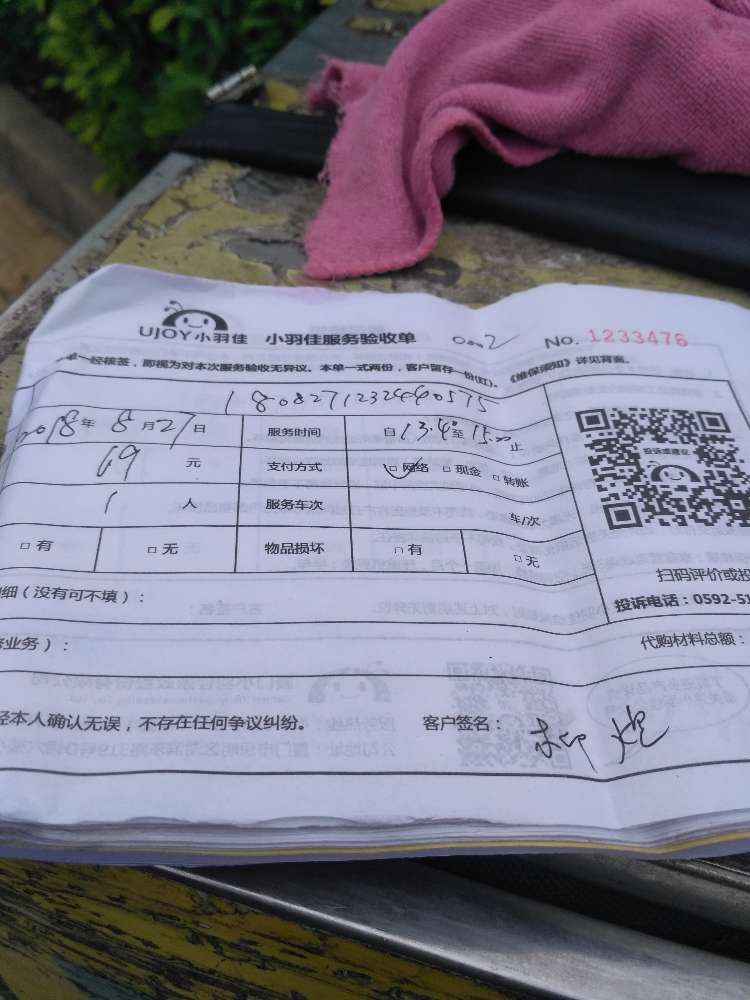 UJOY小羽佳 小羽佳服务验收单 0002 No. 1233476
单一经核签，即视为对本次服务验收无异议。本单一式两份，客户留存一份(红)。《维保须知》详见背面。
1808271232440575
2018年8月27日 服务时间 自13.40至15.00止
69元 支付方式 □网络 □现金 □转账
1人 服务车次 车/次
投诉或建议
□有 □无 物品损坏 □有 □无
扫码评价或投
细（没有可不填）：
投诉电话：0592-51
业务）：
代购材料总额：
经本人确认无误，不存在任何争议纠纷。 客户签名：